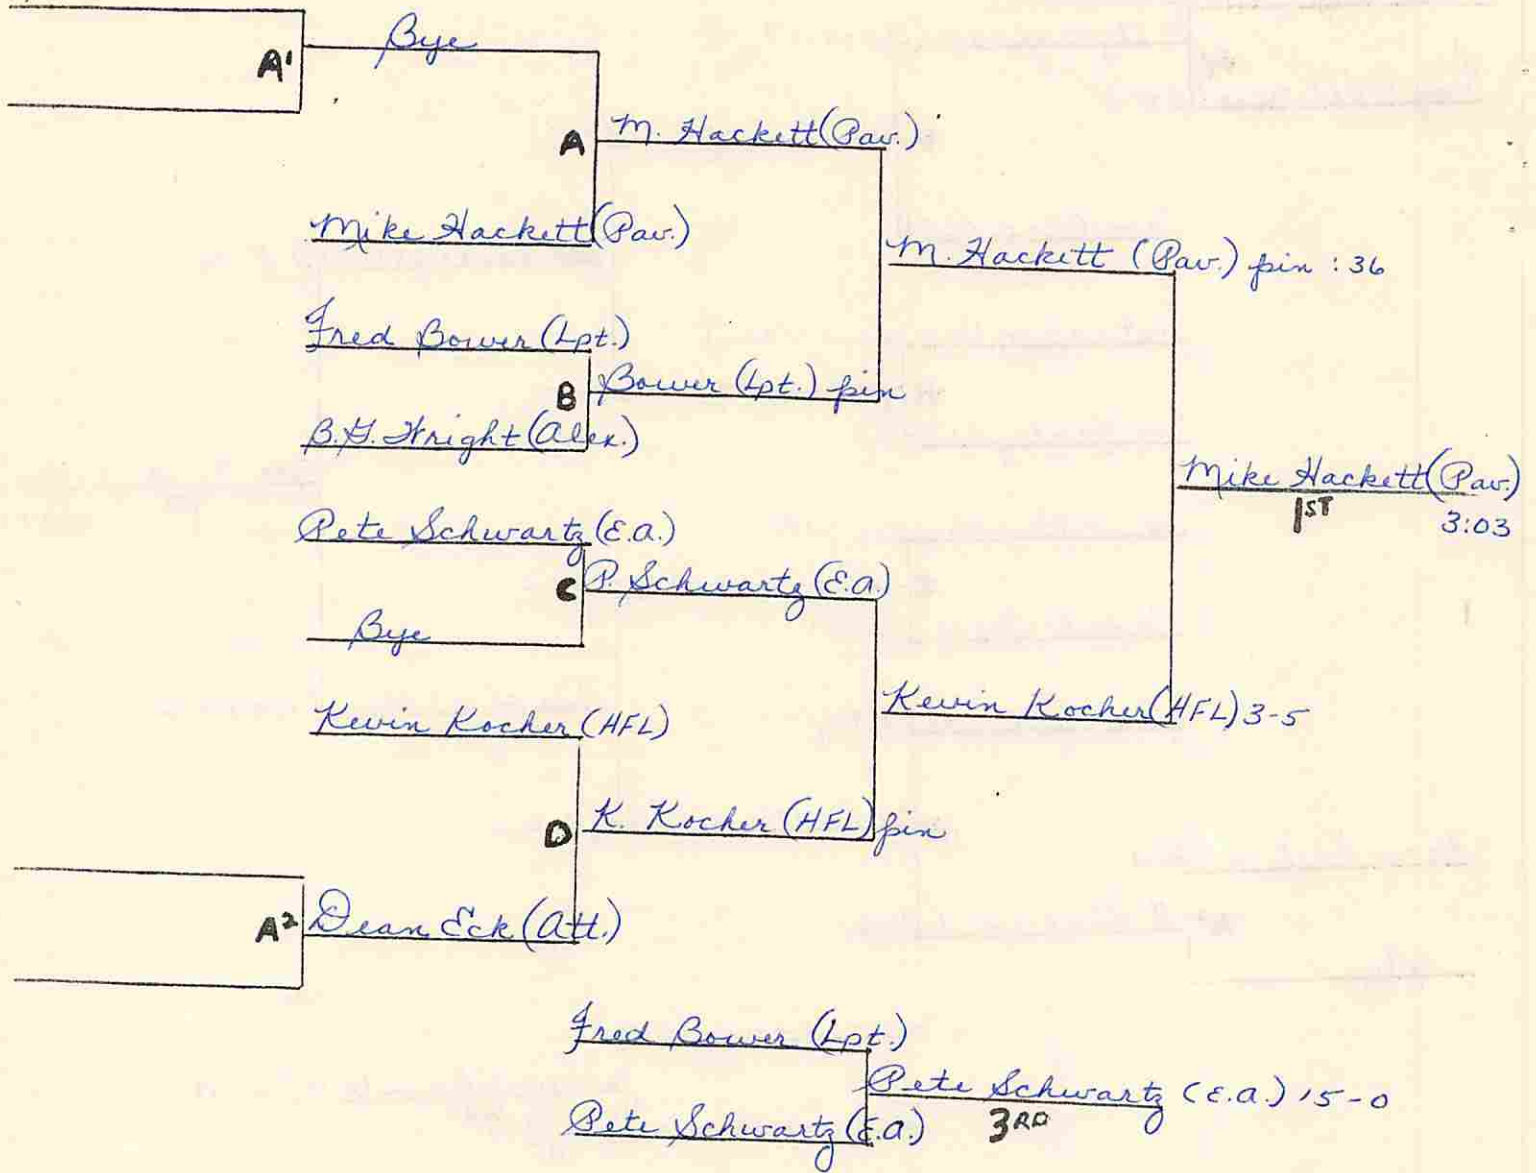 Bye
A¹
M. Hackett (Pav.)
A
Mike Hackett (Pav.)
M. Hackett (Pav.) pin :36
Fred Bower (Lpt.)
Bower (Lpt.) pin
B
B.G. Wright (Alex.)
Mike Hackett (Pav.)
1ST
3:03
Pete Schwartz (E.A.)
P. Schwartz (E.A.)
C
Bye
Kevin Kocher (HFL)
Kevin Kocher (HFL) 3-5
K. Kocher (HFL) pin
D
A²
Dean Eck (Att.)
Fred Bower (Lpt.)
Pete Schwartz (E.A.) 15-0
3RD
Pete Schwartz (E.A.)